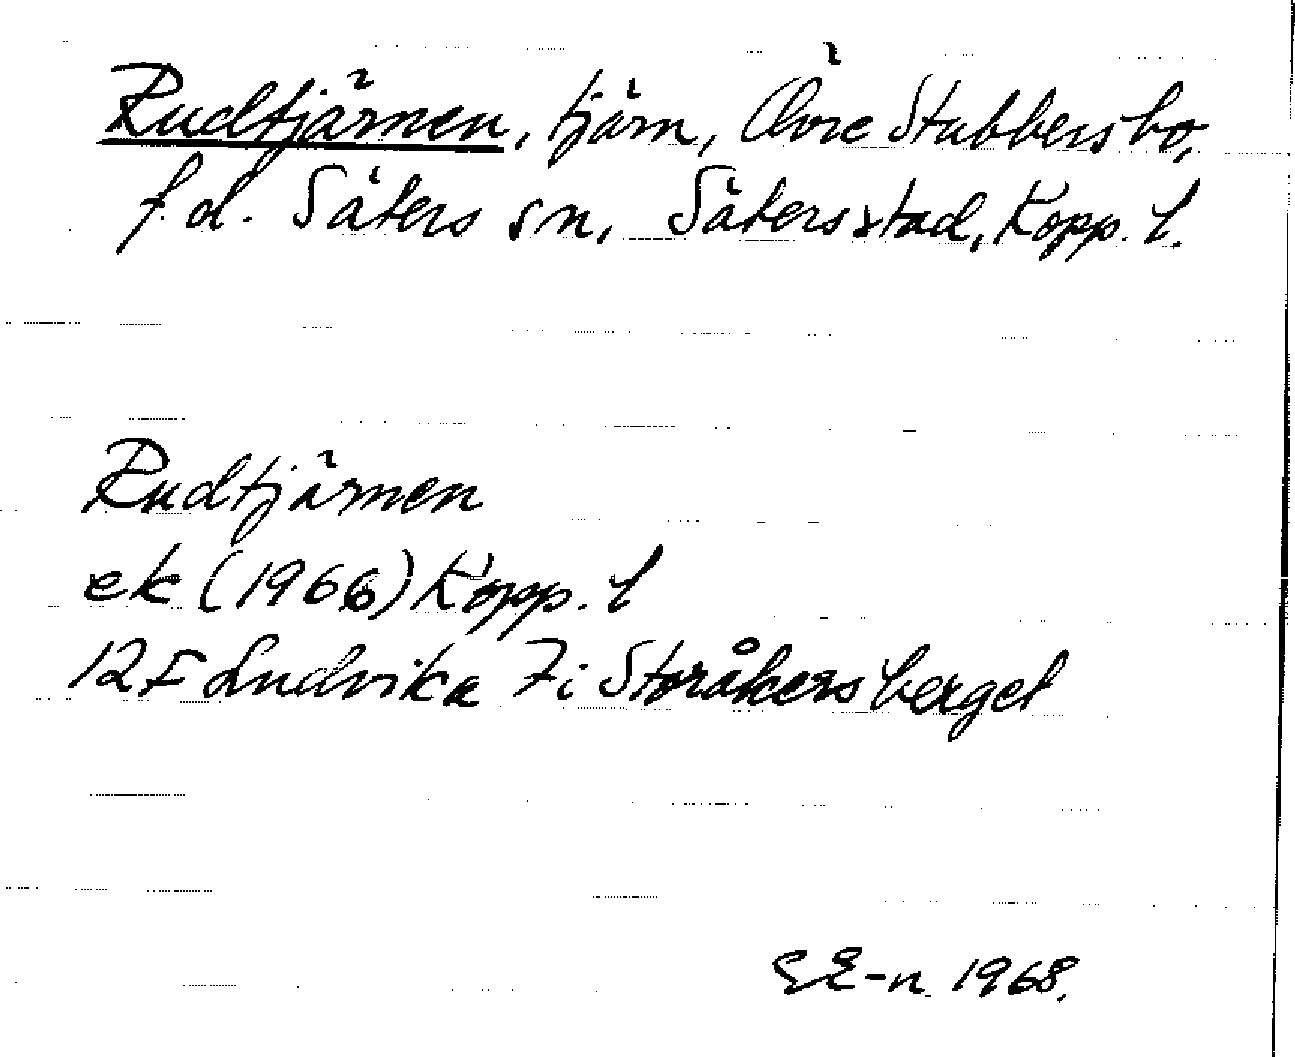 Rudtjärnen, tjärn, Övre Stubbersbo,
f.d. Säters sn, Säters stad, Kopp. l.
Rudtjärnen
ek (1966) Kopp. l
12F Ludvika 7i Storåkersberget
EE-n. 1968.